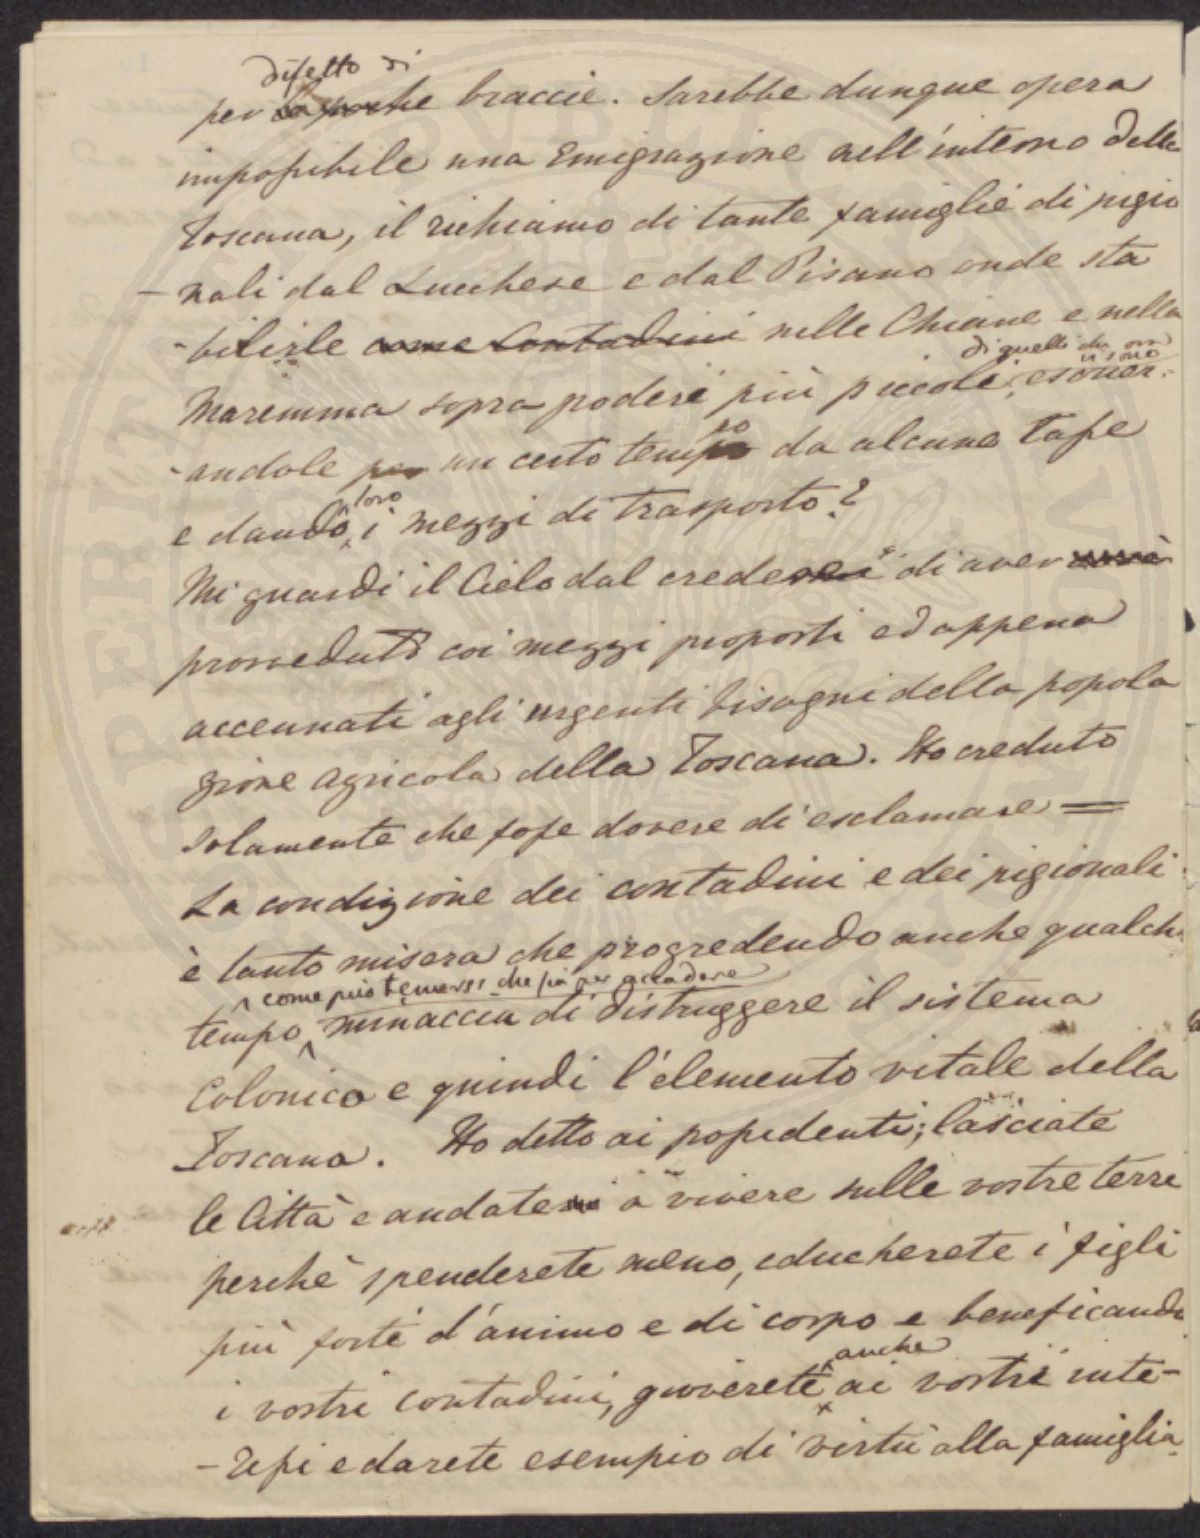 difetto di
per la poche braccie. Sarebbe dunque opera
impossibile una Emigrazione nell'interno della
Toscana, il richiamo di tante famiglie di pigio
- nali dal Lucchese e dal Pisano onde sta
- bilirle come Contadini nelle Chiane e nella
di quelli che ora vi sono
Maremma sopra poderi più piccoli, esoner-
- andole per un certo tempo da alcune tasse
loro
e dando i mezzi di trasporto?
Mi guardi il Cielo dal credere di aver
provveduto coi mezzi proposti ed appena
accennati agli urgenti bisogni della popola
zione agricola della Toscana. Ho creduto
solamente che fosse dovere di esclamare =
La condizione dei contadini e dei pigionali
è tanto misera che progredendo anche qualche
come può temersi che sia per accadere
tempo minaccia di distruggere il sistema
Colonico e quindi l'elemento vitale della
Toscana. Ho detto ai possidenti; lasciate
le Città e andate a vivere sulle vostre terre
perchè spenderete meno, educherete i figli
più forti d'animo e di corpo e beneficando
anche
i vostri contadini, gioverete ai vostri inte-
- ressi e darete esempio di virtù alla famiglia